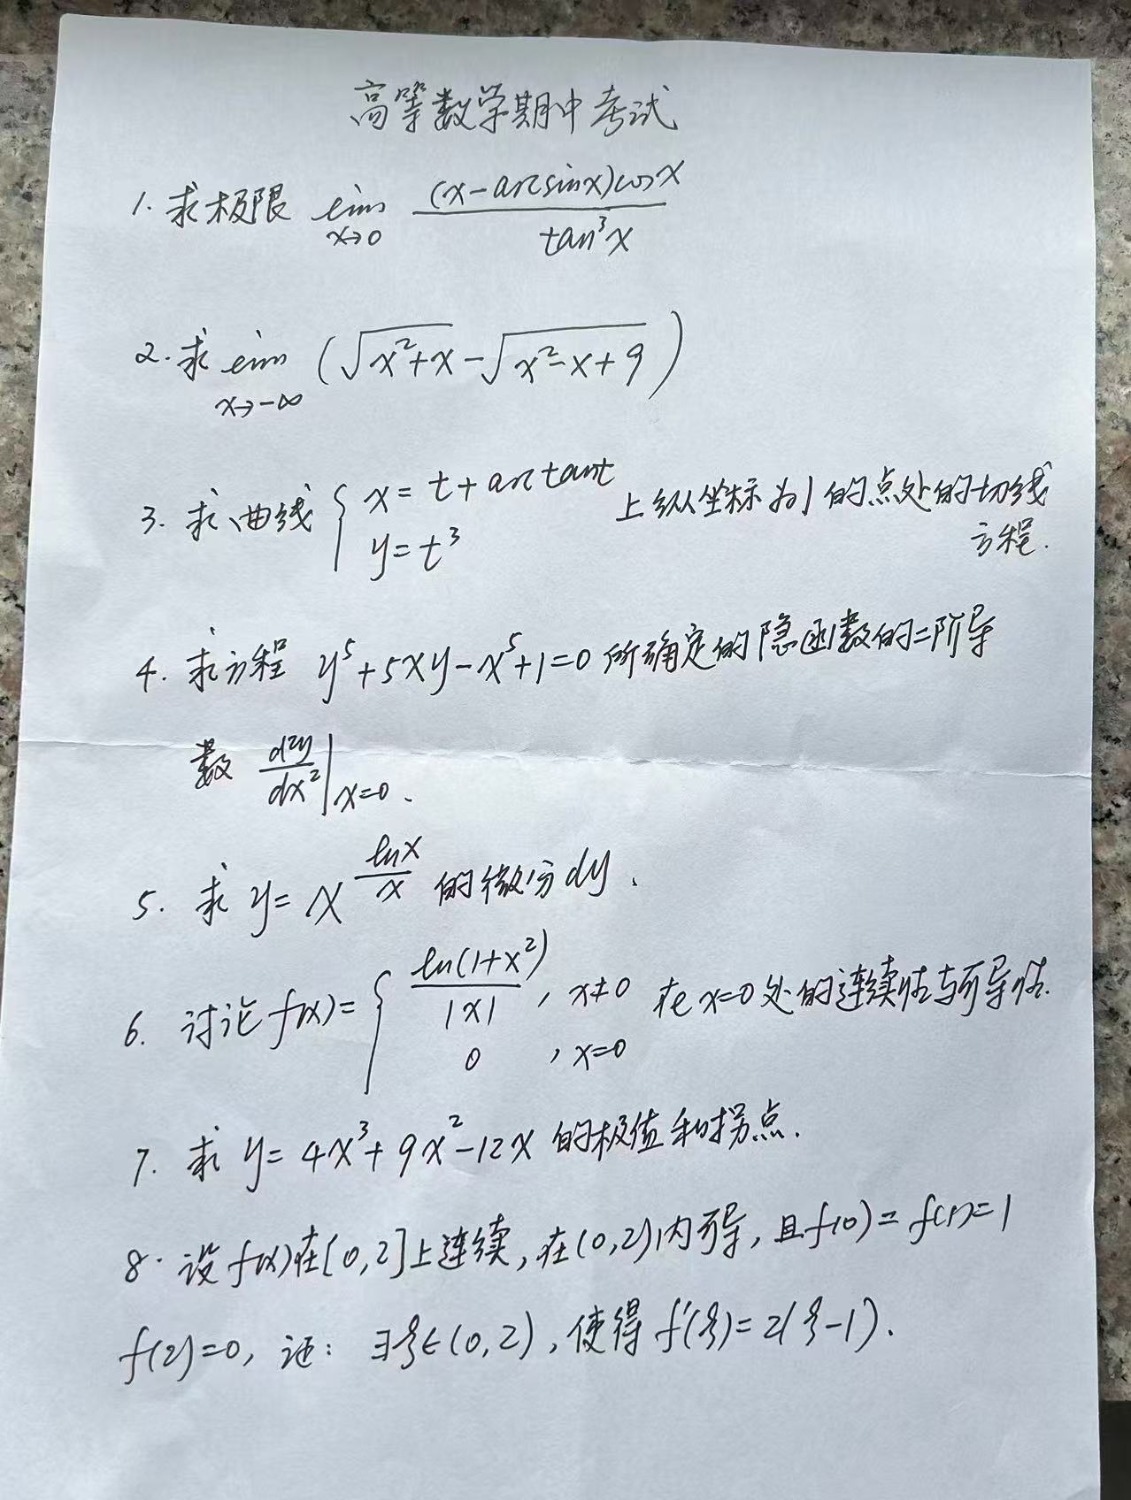 高等数学期中考试
1. 求极限 lim x→0 (x-arcsinx)cosx / tan³x
2. 求 lim x→-∞ (√(x²+x) - √(x²-x+9))
3. 求曲线 { x=t+arctant y=t³ 上纵坐标为1的点处的切线
方程.
4. 求方程 y⁵+5xy-x⁵+1=0 所确定的隐函数的二阶导
数 d²y/dx² | x=0.
5. 求 y=x^(lnx/x) 的微分dy.
6. 讨论 f(x)= { ln(1+x²)/|x| , x≠0 0 , x=0 在x=0处的连续性与可导性.
7. 求 y=4x³+9x²-12x 的极值和拐点.
8. 设f(x)在[0,2]上连续,在(0,2)内可导,且f(0)=f(1)=1
f(2)=0, 证: ∃ξ∈(0,2),使得 f'(ξ)=2(ξ-1).